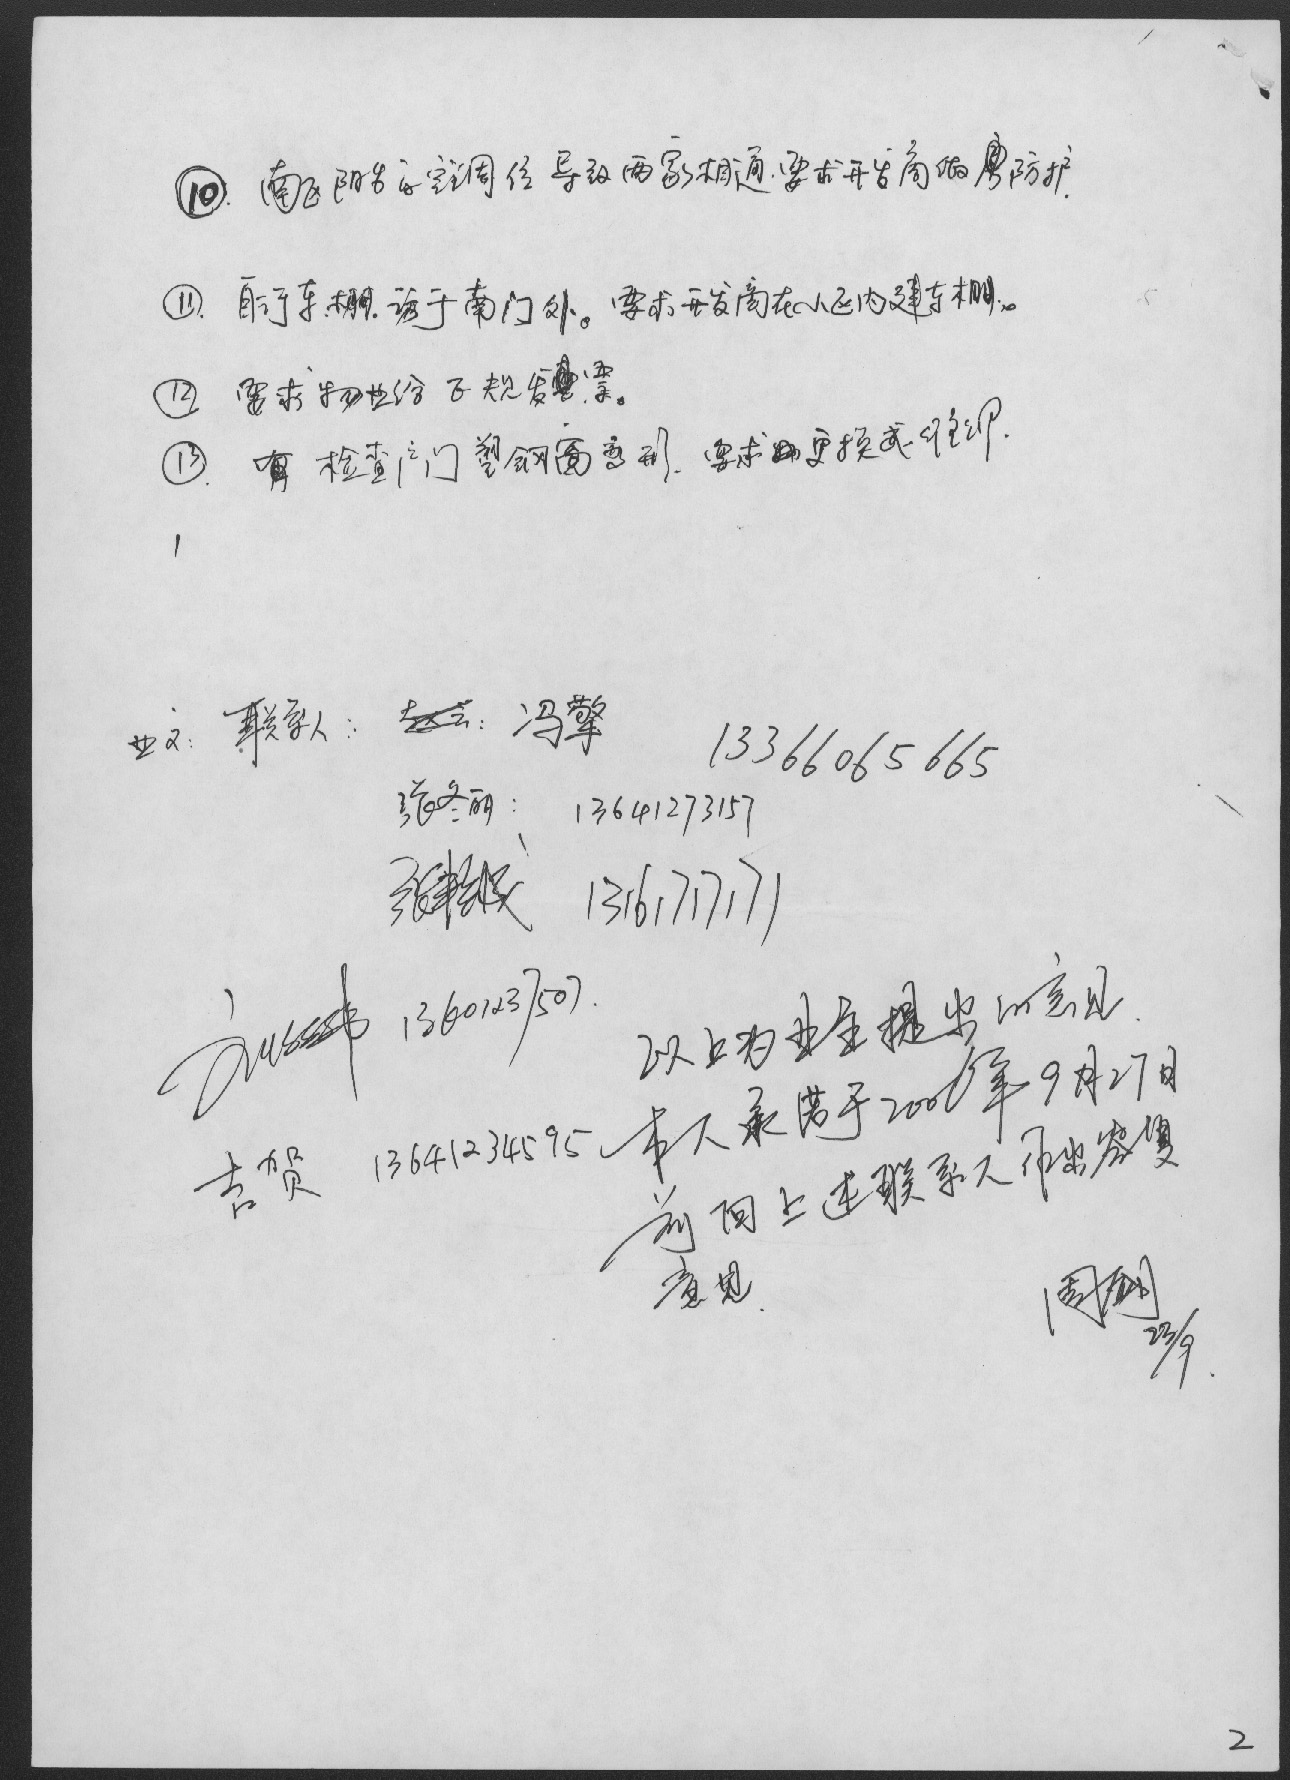 ⑩. 南区阳台空调位导致两家相通.要求开发商做防护.
⑪. 自行车棚.设于南门外。要求开发商在小区内建车棚。
⑫ 要求物业给正规发票。
⑬. 有 检查门塑钢窗变形.要求更换或修理.
业主: 联系人: 冯擎 13366065665
张冬丽: 13641273157
13161717171
13601237507.
吉贺 13641234595
以上为业主提出的意见.
本人承诺于2006年9月27日
前向上述联系人作出答复
意见.
周
23/9.
2